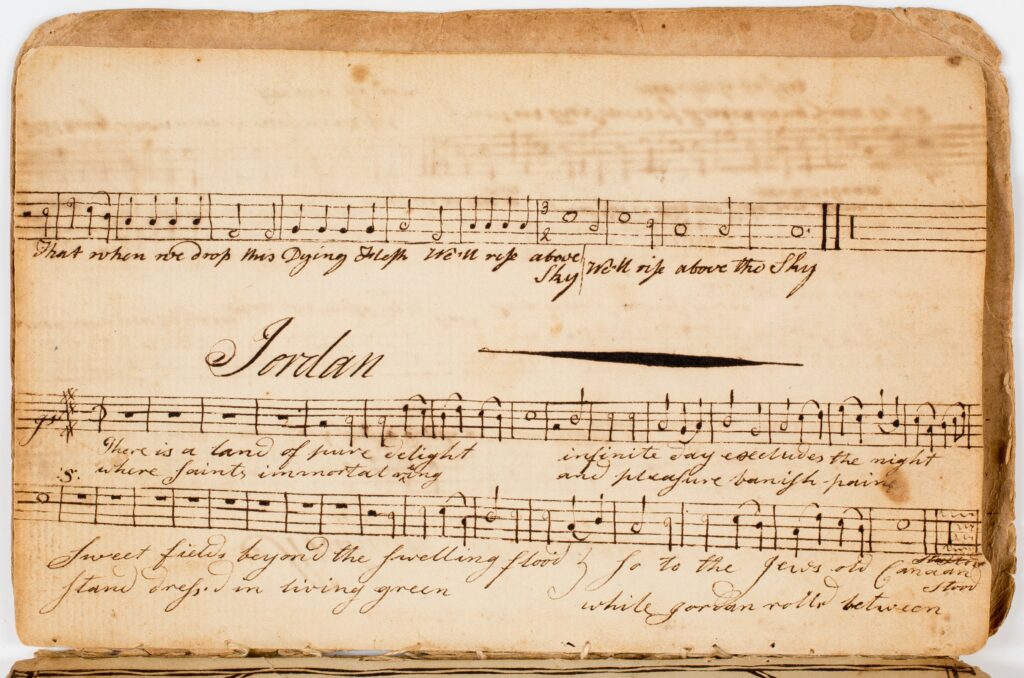 That when we drop this Dying Flesh We'll rise above
Sky We'll rise above the Sky
Jordan
There is a land of pure delight infinite day excludes the night
where saints immortal and pleasure banish pain
Sweet fields beyond the swelling flood so to the Jews old Canaan
stood
stand dress.d in living green while Jordan roll'd between